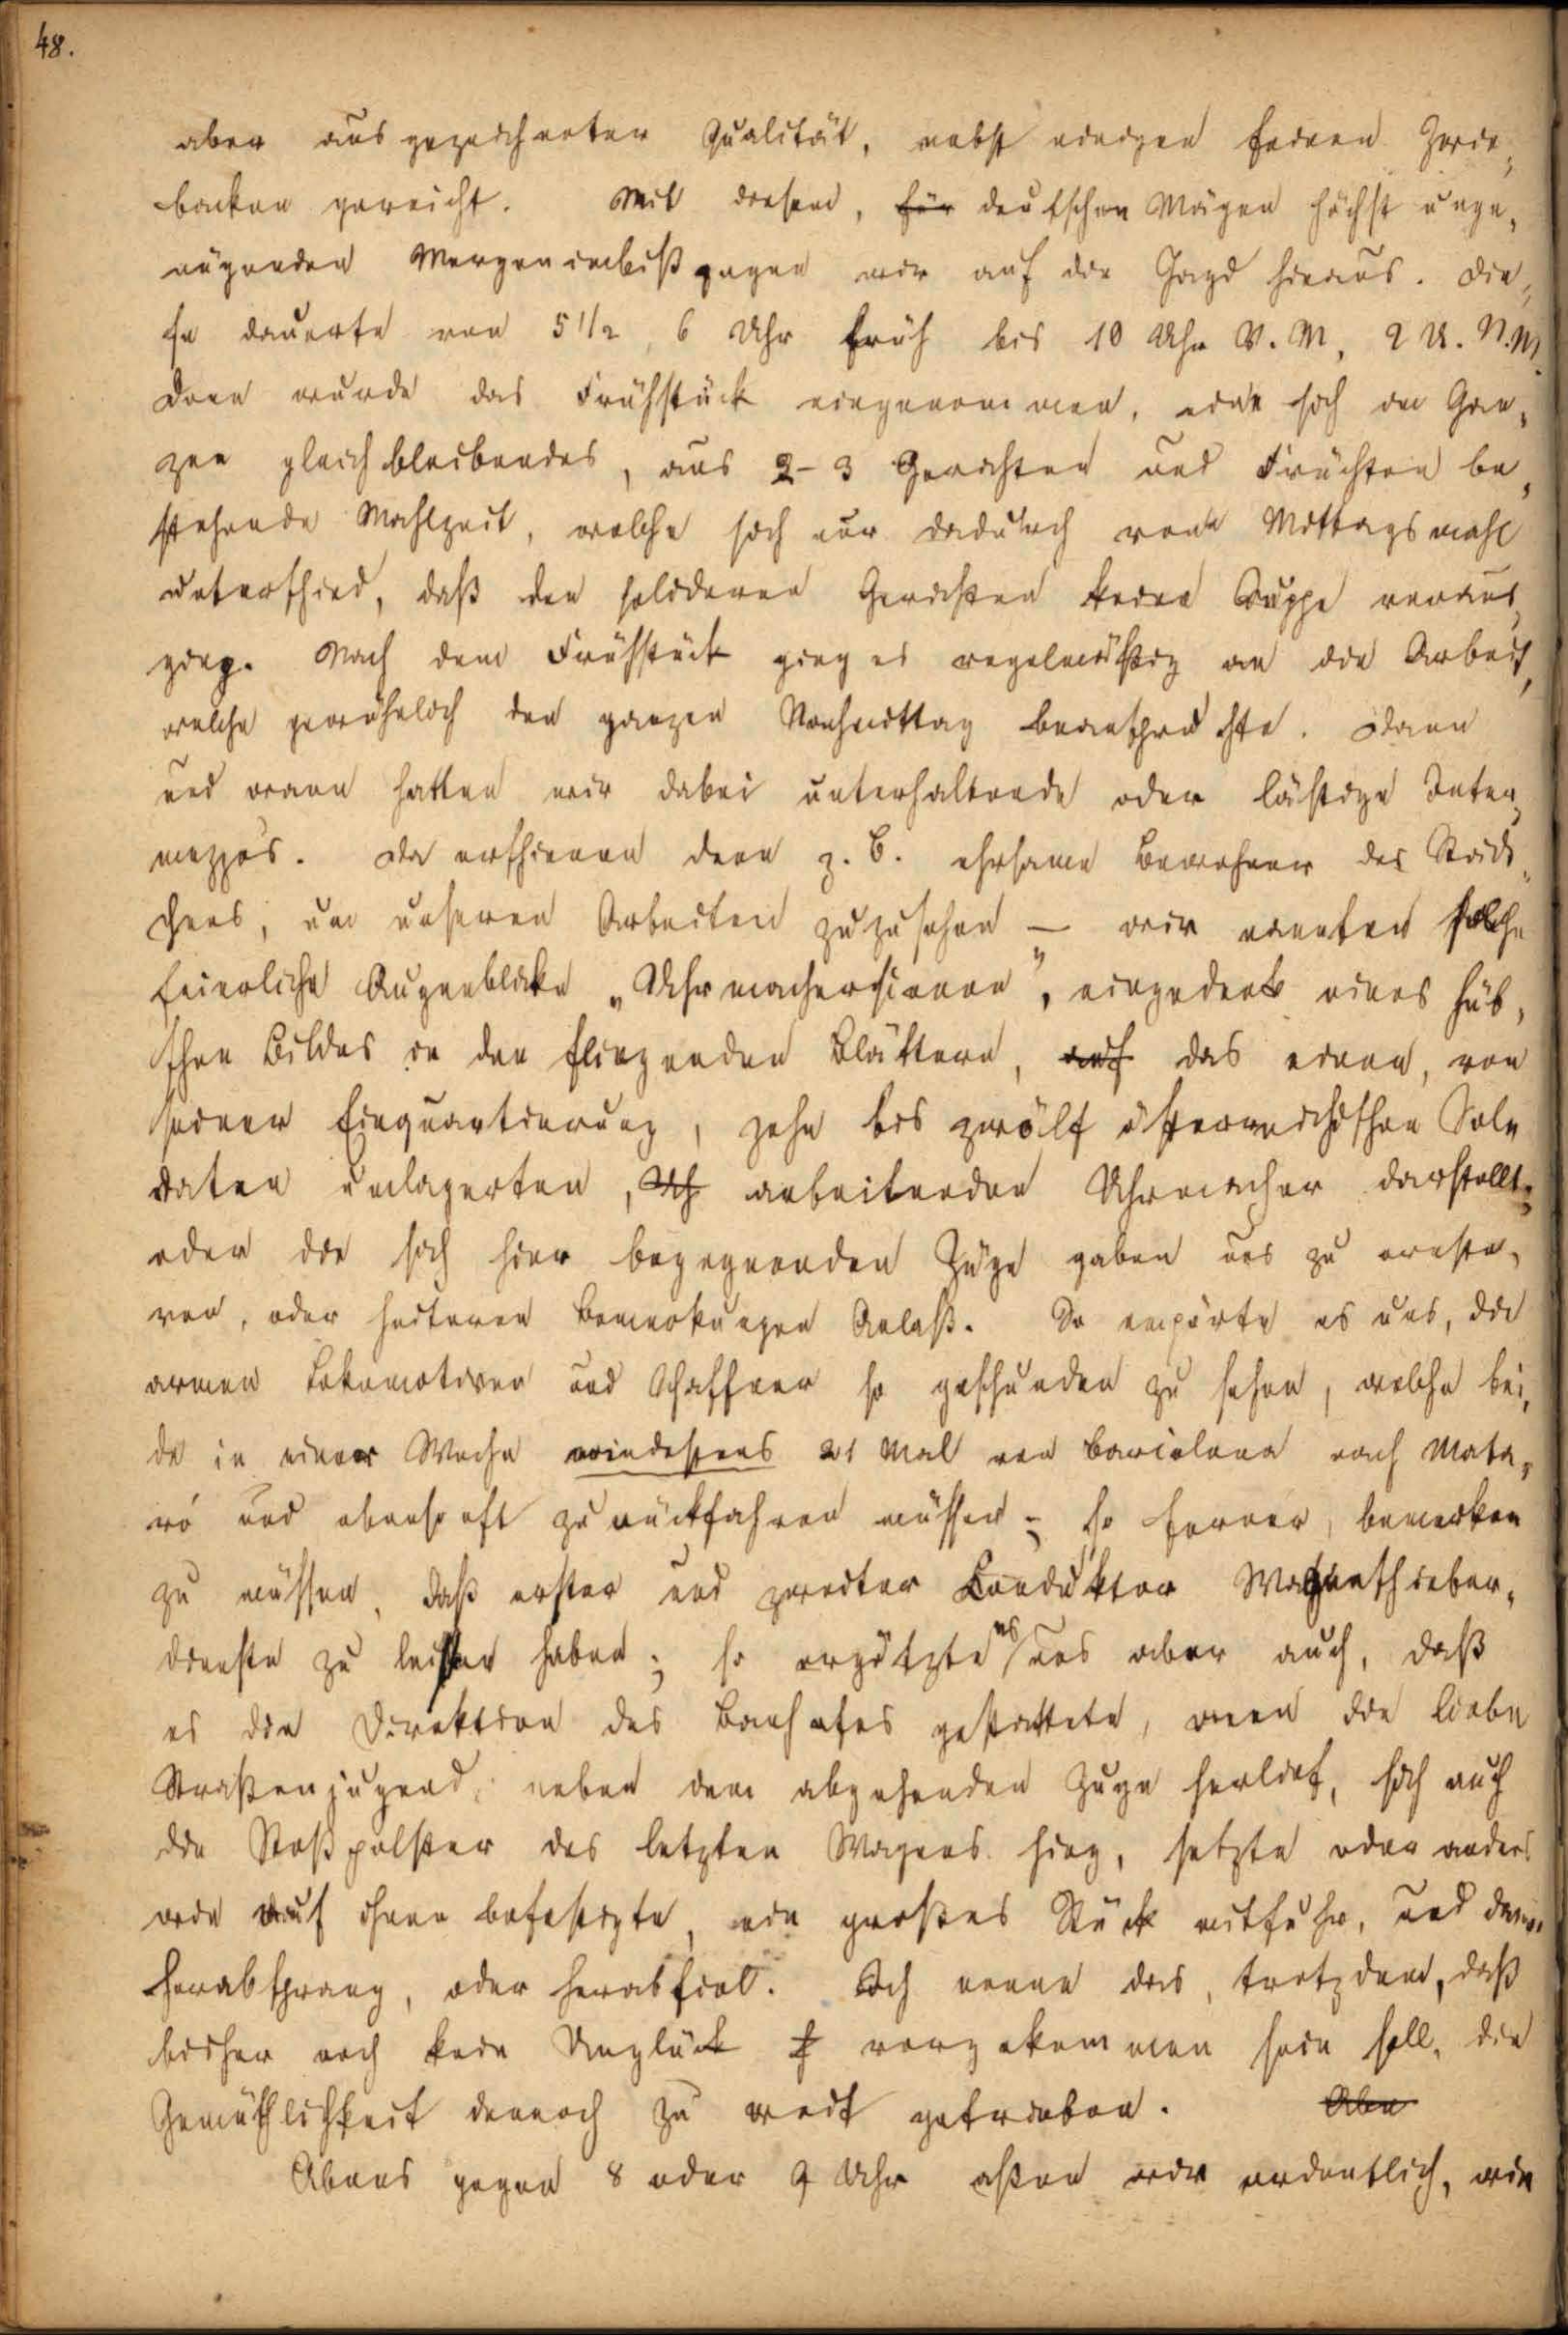 48.
aber ausgezeichneter Qualität, nebst einigen feinen Zwie,
backen gereicht. Mit diesem, für deutschen Mägen höchst unge,
nügenden Morgenimbiß gingen wir auf die Jagd hinaus. Die,
se dauerte von 5 1/2, 6 Uhr früh bis 10 Uhr V. M, 2 U. N. M.
Dann wurde das Frühstück eingenommen, eine sich im Gan,
zen gleichbleibendes, aus 2-3 Gerichten und Früchten be,
stehende Mahlzeit, welche sich nur dadurch vom Mittagsmahl
unterschied, daß den solideren Gerichten keine Suppe voraus,
ging. Nach dem Frühstück ging es regelmäßig an die Arbeit,
welche gewöhnlich den ganzen Nachmittag beanspruchte. Dann
und wann hatten wir dabei unterhaltende oder lästige Inter,
mezzos. Da erschienen denn z. B. ehrsame Bewohner des Städt,
chens, um unseren Arbeiten zuzusehen — wir nannten solche
feierliche Augenblicke „Uhrmacherscenen", eingedenk eines hüb,
schen Bildes in den fliegenden Blättern, auf das einen, von
seiner Einquartierung, zehn bis zwölf österreichischen Sol,
daten umlagerten, Uh arbeitenden Uhrmacher darstellt;
oder die sich hier begegnenden Züge gaben uns zu ernste,
ren, oder heiteren Bemerkungen Anlaß. So empörte es uns, die
armen Lokomotiven und Schaffner so geschunden zu sehen, welche bei,
de in einer Woche mindestens 21 Mal von Barcelona nach Mata,
ró und ebenso oft zurückfahren müssen; so ferner, bemerken
zu müssen, daß erster und zweiter Conduktor Wagenschieber,
dienste zu leisten haben; so ergötzte es uns aber auch, daß
es die Direktion des Bahnhofes gestattete, wenn die liebe
Straßenjugend neben dem abgehenden Zuge herlief, sich auf
die Stoßpolster des letzten Wagens hing, setzte oder anders
wie auf ihnen befestigte, ein großes Stück mitfuhr, und dann
herabsprang, oder herabfiel. Ich nenne das, trotzdem, daß
bisher noch kein Unglück vorgekommen sein soll, die
Gemüthlichkeit dennoch zu weit getrieben. Aben
Abens gegen 8 oder 9 Uhr aßen wir ordentlich, wie